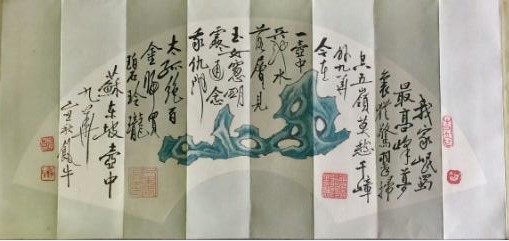 我家岷蜀
最高峰夢
裏猶驚翠掃
空五嶺莫愁千嶂
外九華
今在
一壺中
天池水
落層層見
玉女窗明
處處通念
我仇池
太孤絕百
金歸買
碧玲瓏
蘇東坡壺中
九華